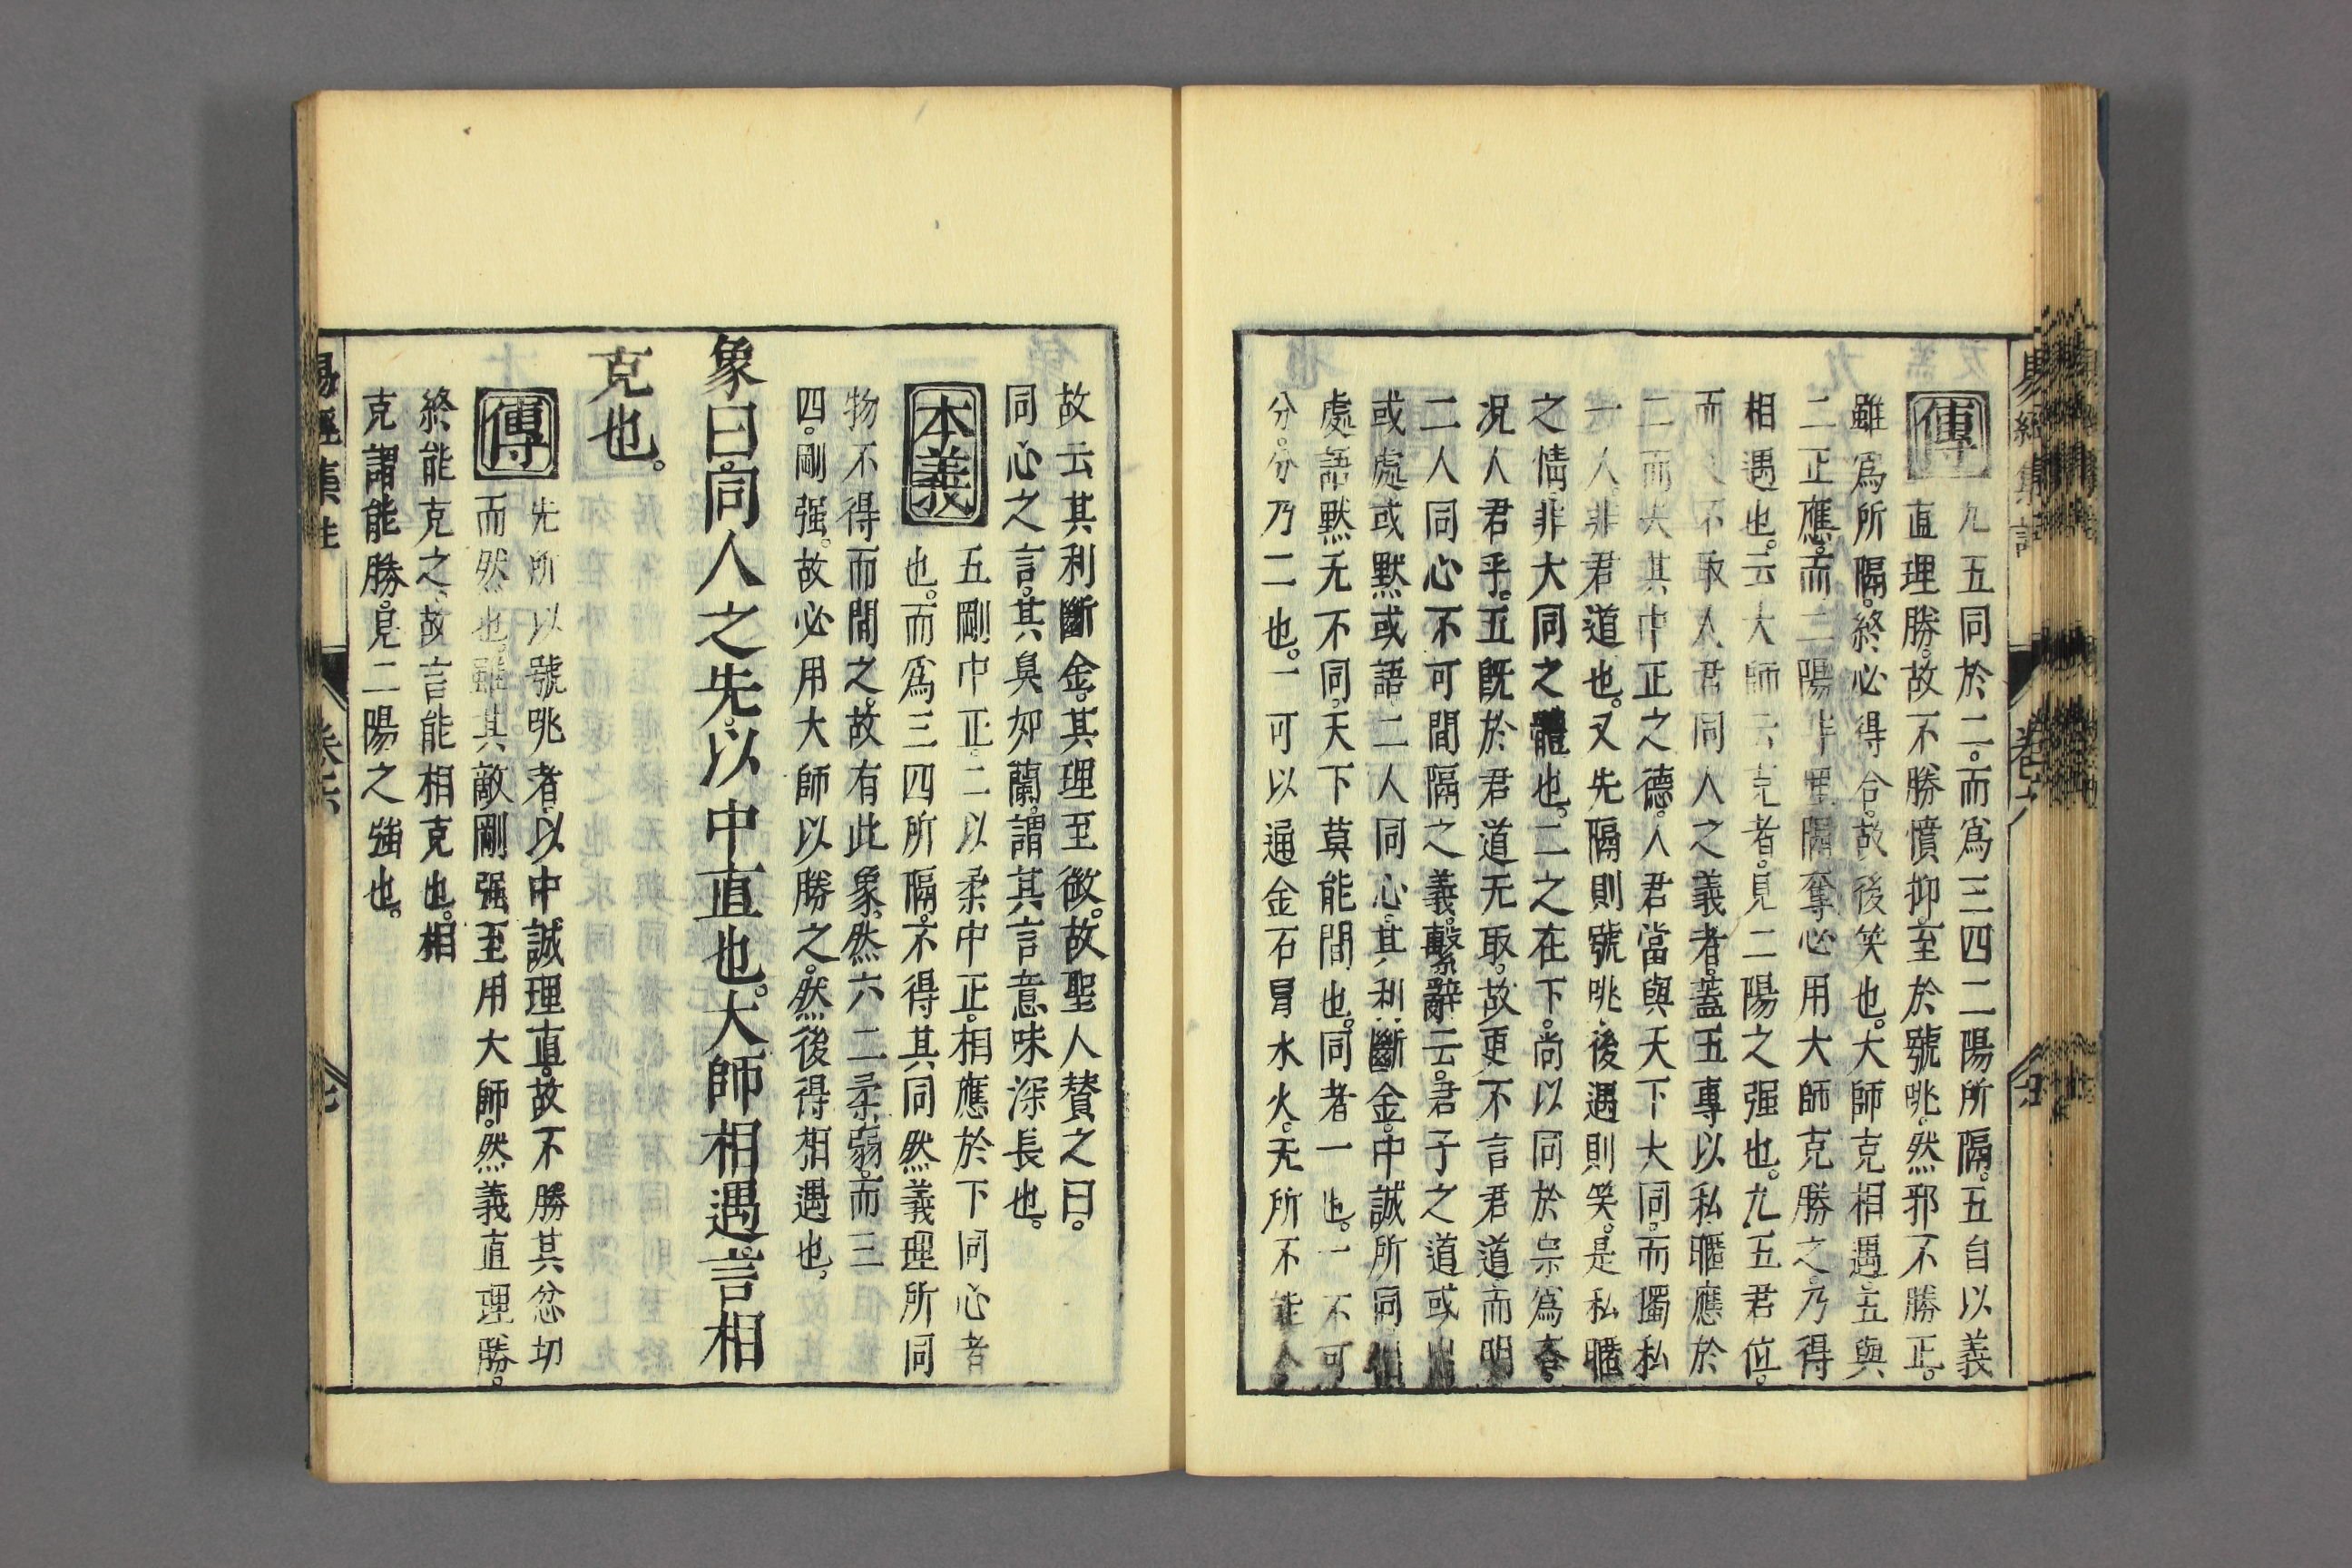 傳 九五同於二。而爲三四二陽所隔。五自以義
直理勝。故不勝憤抑。至於號咷。然邪不勝正。
雖爲所隔。終必得合。故後笑也。大師克相遇。五與
二正應。而二陽非理隔奪。必用大師克勝之。乃得
相遇也。云大師云克者。見二陽之强也。九五君位。
而不取人君同人之義者。蓋五專以私暱應於
二。而失其中正之德。人君當與天下大同。而獨私
一人。非君道也。又先隔則號咷。後遇則笑。是私暱
之情。非大同之體也。二之在下。尚以同於宗爲吝。
况人君乎。五旣於君道无取。故更不言君道。而明
二人同心不可間隔之義。繫辭云。君子之道。或出
或處。或默或語。二人同心。其利斷金。中誠所同。出
處語默无不同。天下莫能間也。同者一也。一不可
分。分乃二也。一可以通金石。冒水火。无所不能
故云其利斷金。其理至微。故聖人賛之曰。
同心之言。其臭如蘭。謂其言意味深長也。
本義 五剛中正。二以柔中正。相應於下。同心者
也。而爲三四所隔。不得其同。然義理所同
物不得而間之。故有此象。然六二柔弱。而三
四剛强。故必用大師以勝之。然後得相遇也。
象曰。同人之先。以中直也。大師相遇。言相
克也。
傳 先所以號咷者。以中誠理直。故不勝其忿切
而然也。雖其敵剛强。至用大師。然義直理勝。
終能克之。故言能相克也。相
克謂能勝。見二陽之强也。
易經集註
卷六